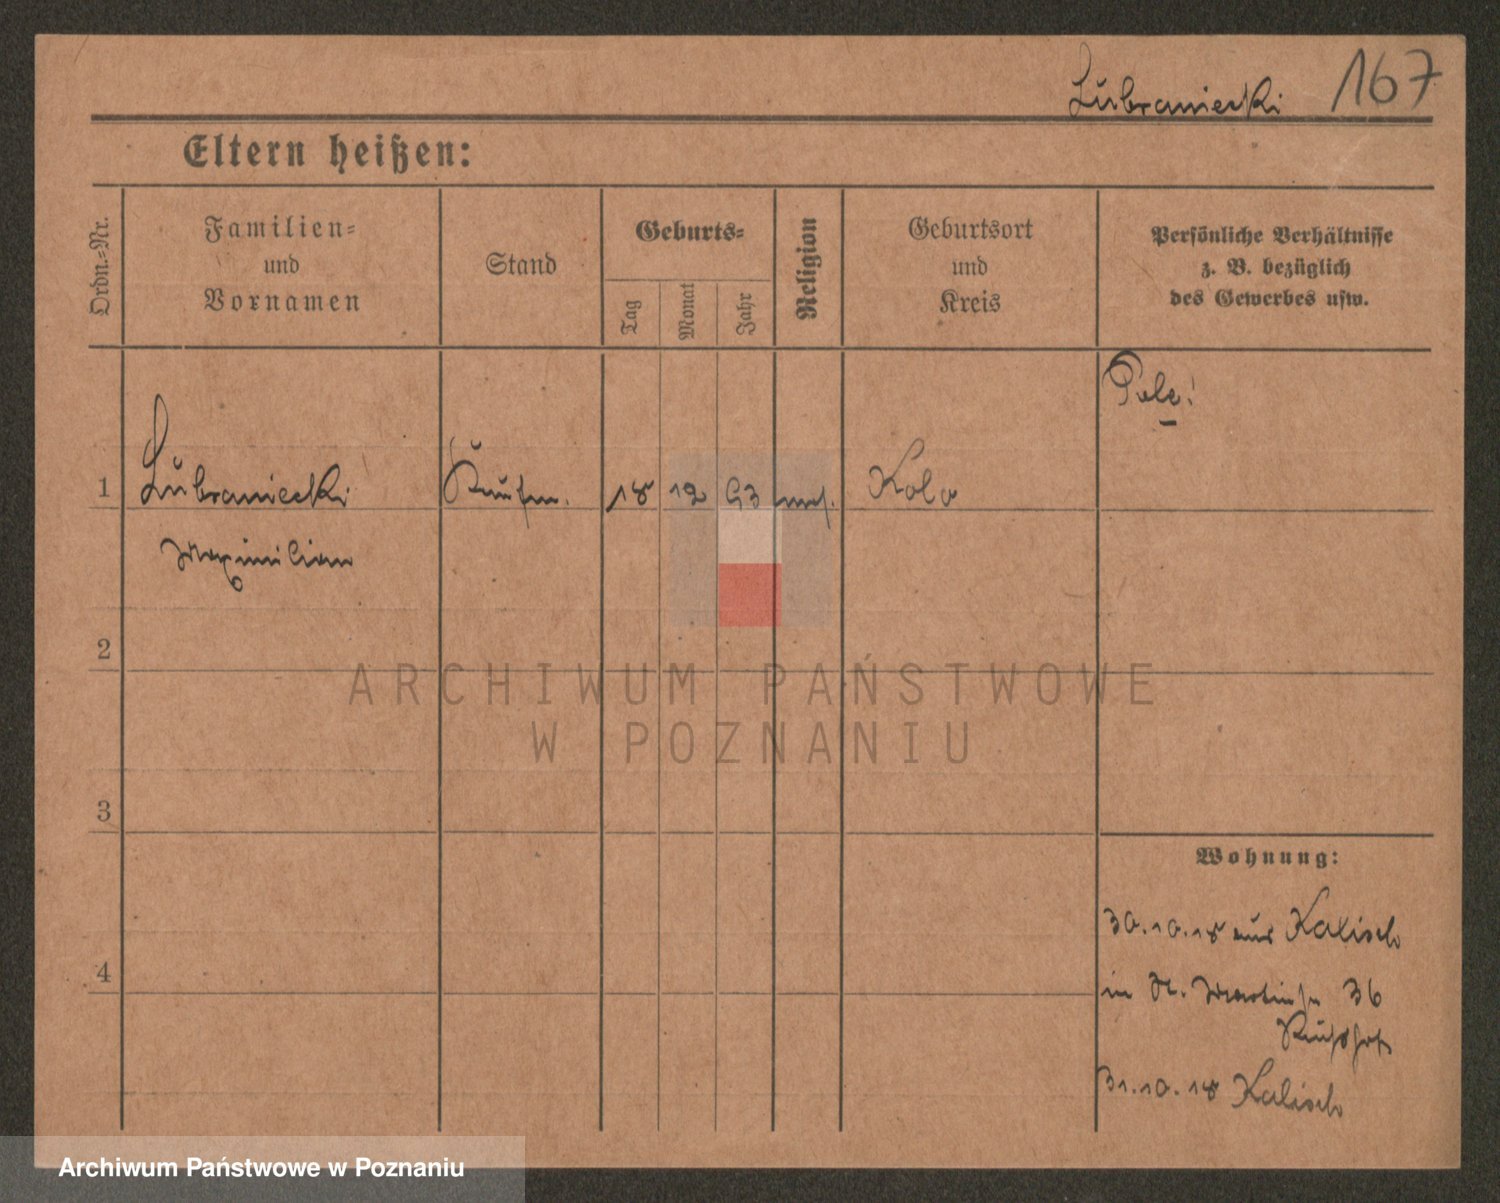 Lubraniecki 167
Eltern heißen:
Ordn.=Nr.
Familien=
und
Vornamen
Stand
Geburts=
Tag
Monat
Jahr
Religion
Geburtsort
und
Kreis
Persönliche Verhältnisse
z. B. bezüglich
des Gewerbes usw.
Pole!
1 Lubraniecki Kaufm. 18 12 93 mos. Kolo
Maximilian
2
3
4
Wohnung:
30.10.18 aus Kalisch
in St. Martinstr 36
31.10.18 Kalisch
ARCHIWUM PAŃSTWOWE
W POZNANIU
Archiwum Państwowe w Poznaniu